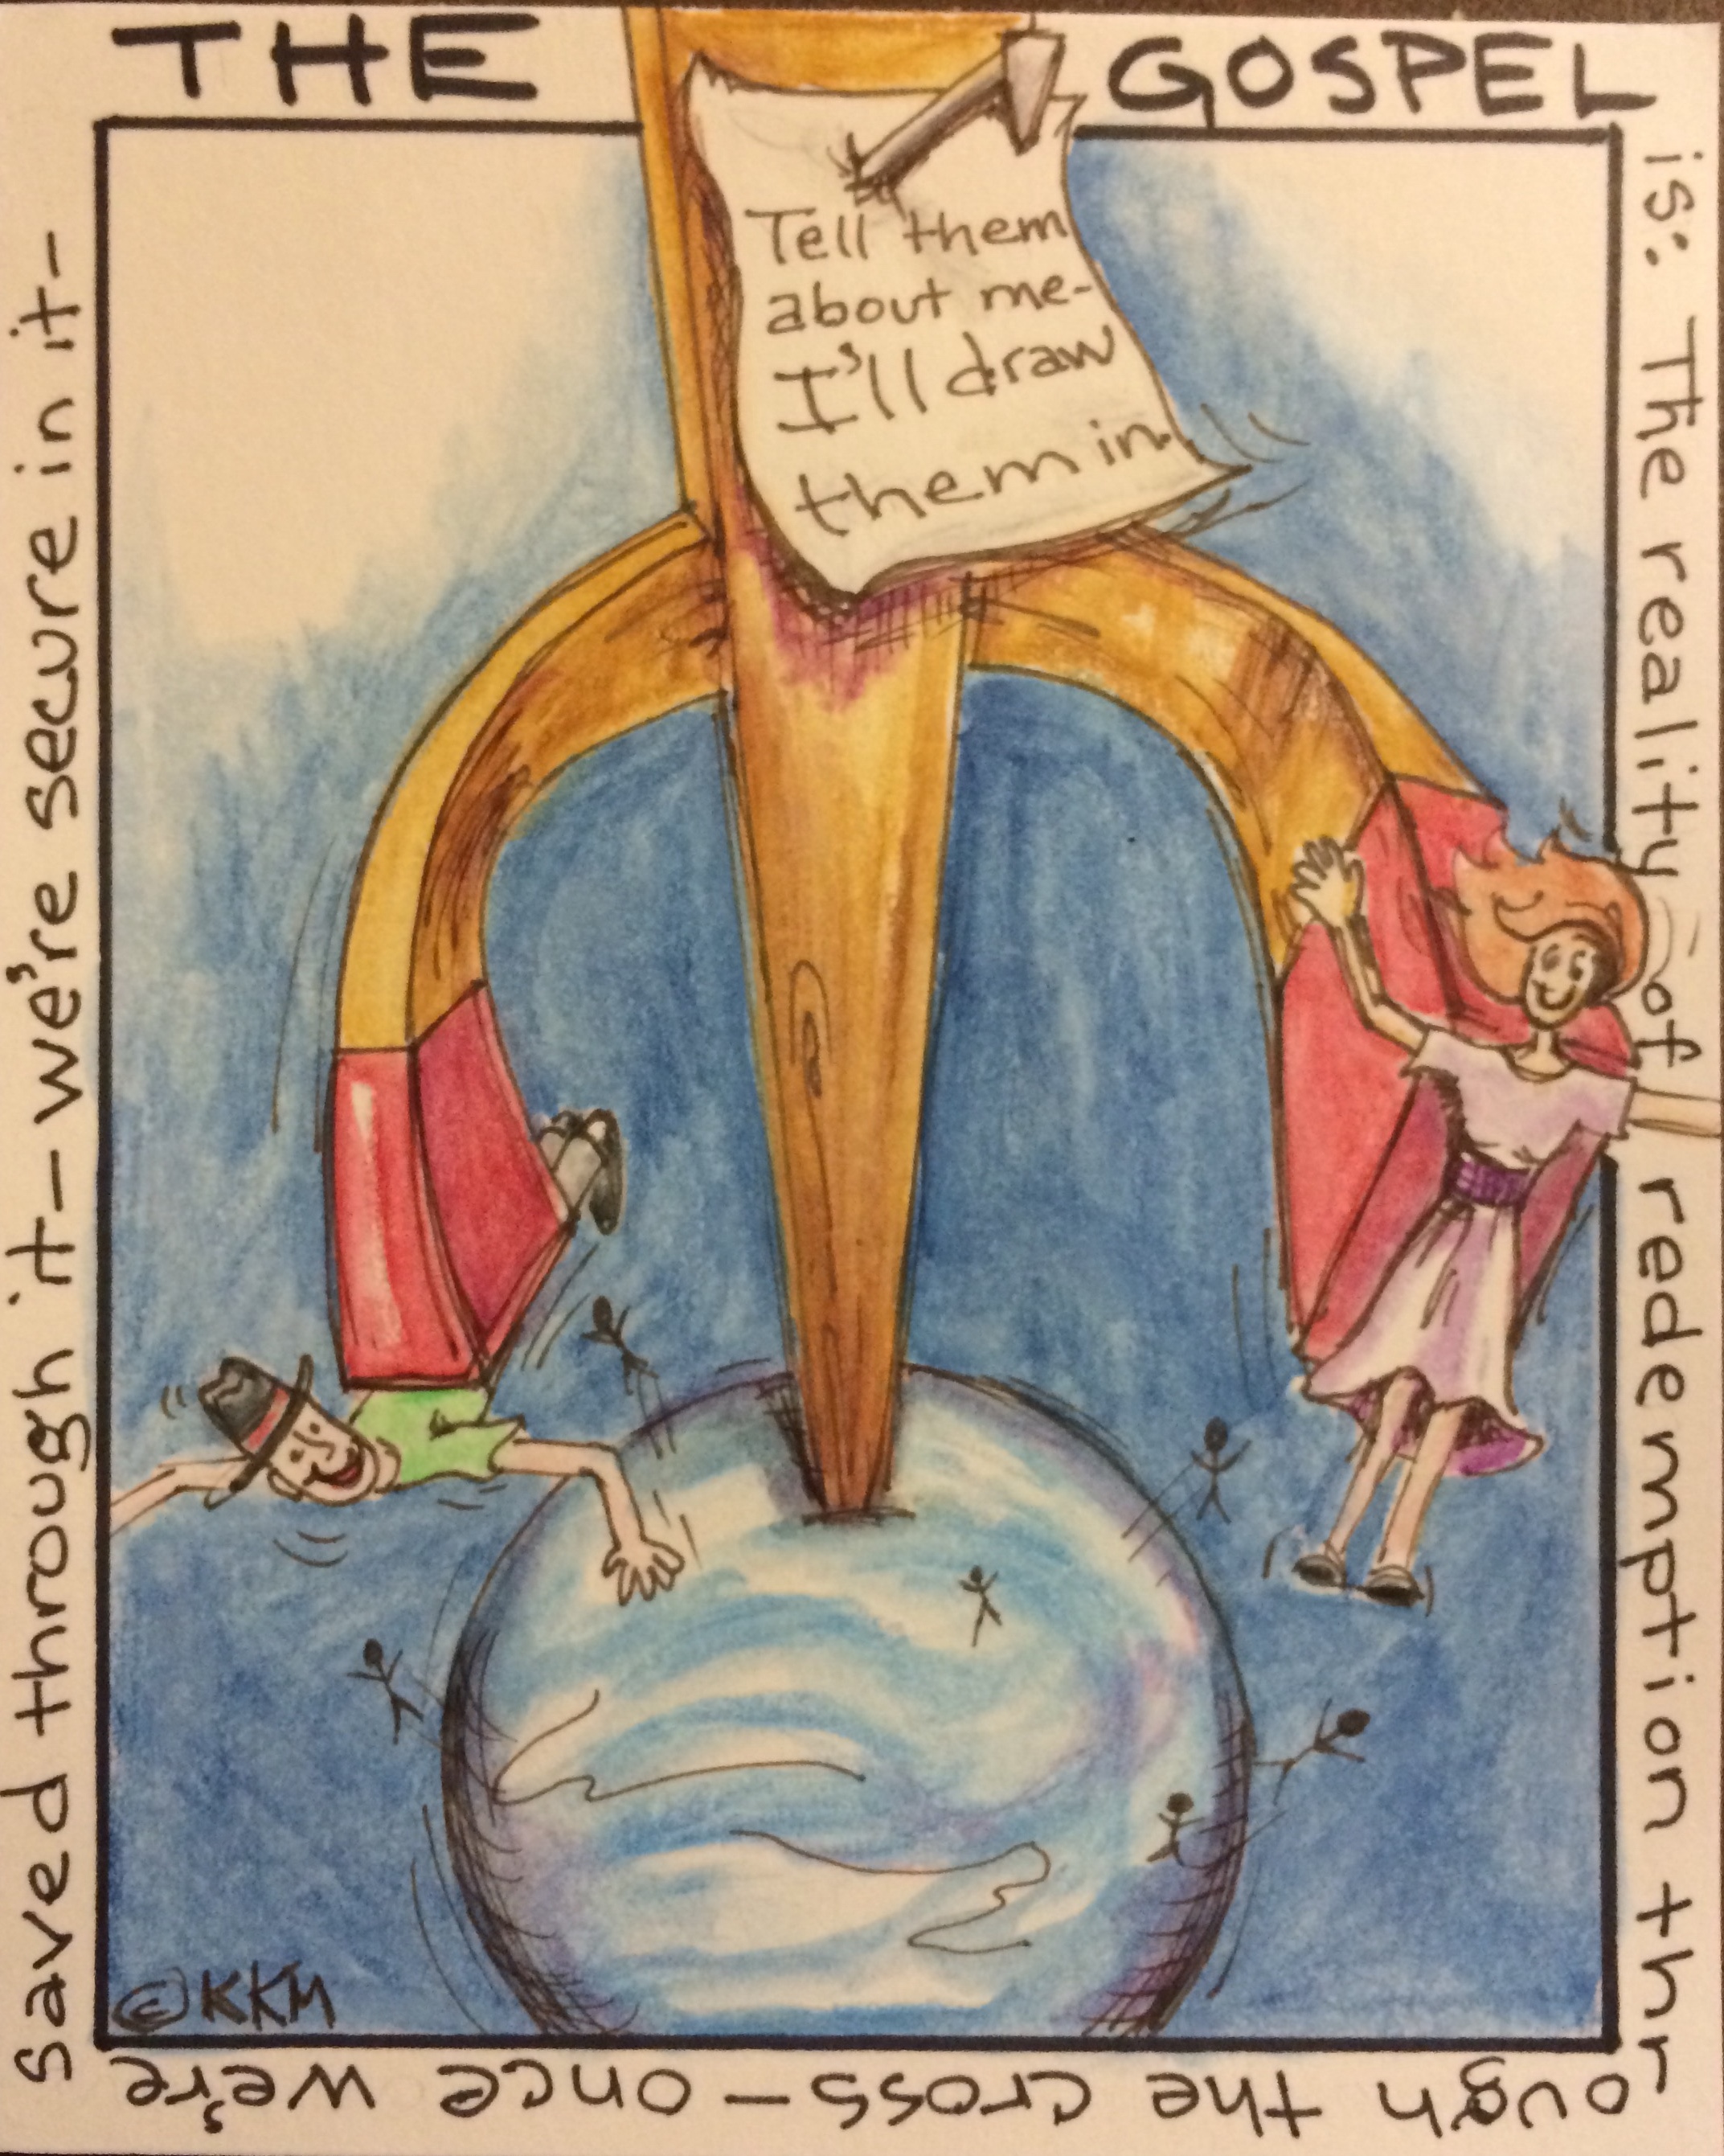 THE GOSPEL
is: The reality of redemption thr
ough the cross — once we're
saved through it — we're secure in it -
Tell them
about me-
I'll draw
them in.
©KKM